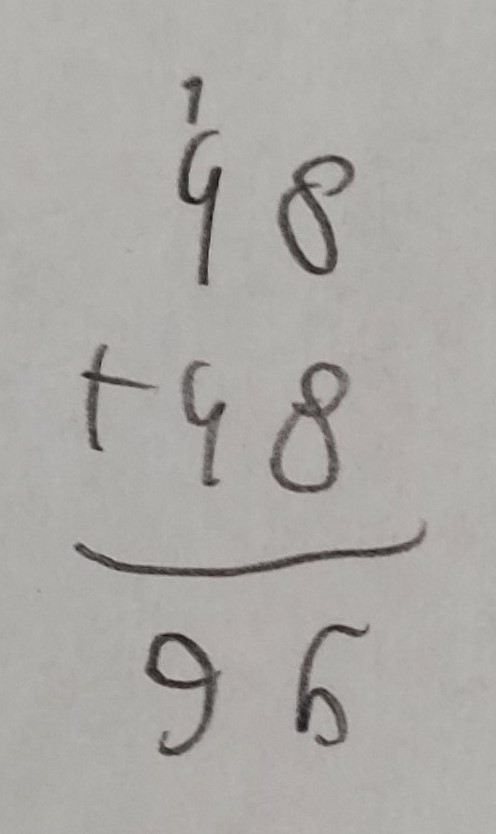 1
48
+48
96